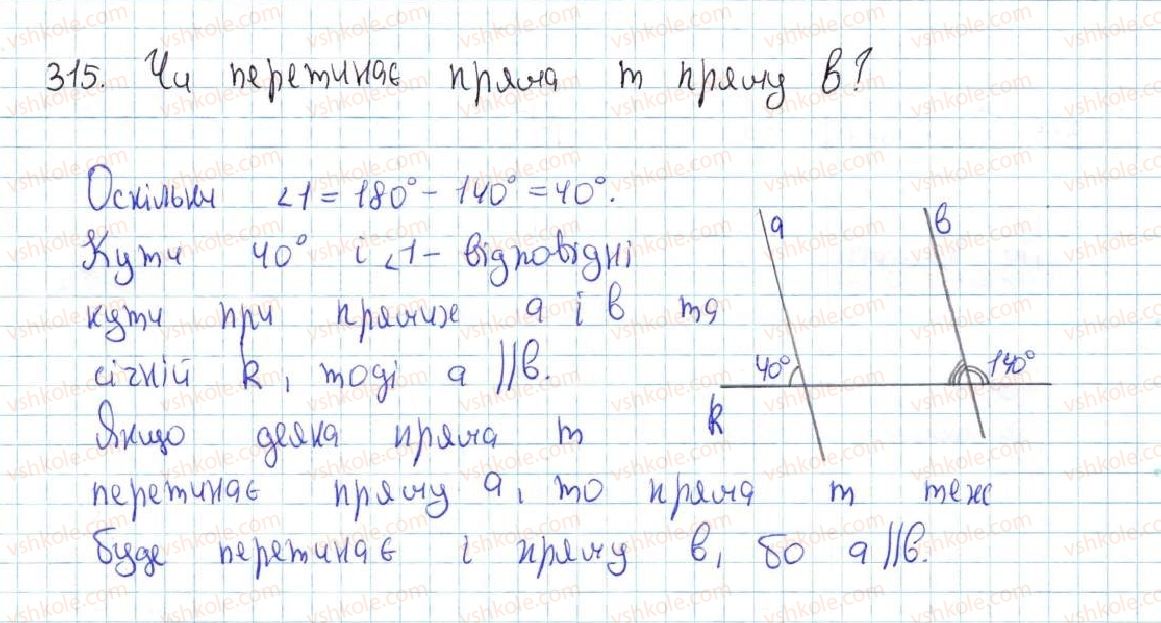 315. Чи перетинає пряма m пряму в?
Оскільки ∠1 = 180° - 140° = 40°.
Кути 40° і ∠1 - відповідні
кути при прямих а і в та
січній k, тоді а || в.
Якщо деяка пряма m
перетинає пряму а, то пряма m теж
буде перетинає і пряму в, бо а || в.
а
в
40°
140°
k
vshkole.com